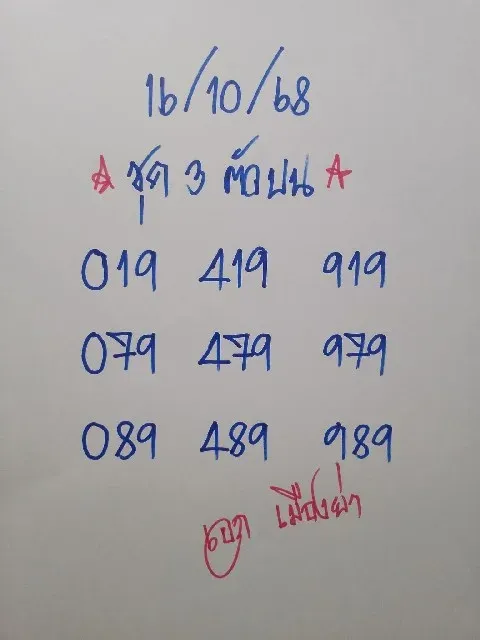 16/10/68
ชุด 3 ตัวบน
019 419 919
079 479 979
089 489 989
เมืองย่า